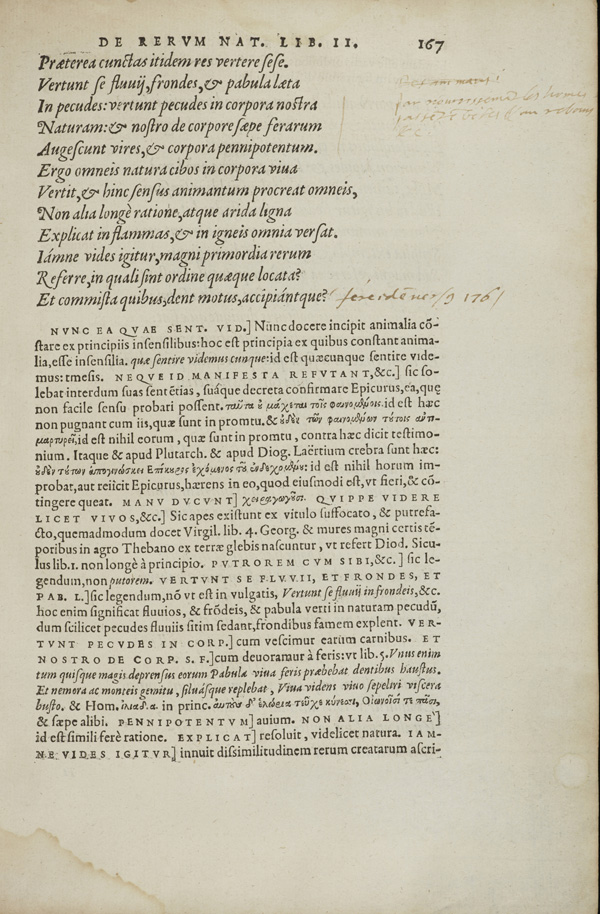 DE RERVM NAT. LIB. II. 167
Præterea cunctas itidem res vertere sese.
Vertunt se fluuij, frondes, & pabula læta
In pecudes: vertunt pecudes in corpora nostra
Naturam: & nostro de corpore sæpe ferarum
Augescunt vires, & corpora pennipotentum.
Ergo omneis natura cibos in corpora viua
Vertit, & hinc sensus animantum procreat omneis,
Non alia longè ratione, atque arida ligna
Explicat in flammas, & in igneis omnia versat.
Iámne vides igitur, magni primordia rerum
Referre, in quali sint ordine quæque locata?
Et commista quibus, dent motus, accipiántque?
NVNC EA QVAE SENT. VID.] Nũnc docere incipit animalia cõ-
stare ex principiis insensilibus: hoc est principia ex quibus constant anima-
lia, esse insensilia. quæ sentire videmus cunque: id est quæcunque sentire vide-
mus: tmesis. NEQVE ID MANIFESTA REFVTANT, &c.] sic so-
lebat interdum suas sentẽtias, suáque decreta confirmare Epicurus, ea, quę
non facile sensu probati possent. ταῦτα ȣ μάχεται τοῖς φαινομένοις. id est hæc
non pugnant cum iis, quæ sunt in promtu. & ȣδὲν τῶν φαινομένων τȣτοις ἀντι-
μαρτυρεῖ, id est nihil eorum, quæ sunt in promtu, contra hæc dicit testimo-
nium. Itaque & apud Plutarch. & apud Diog. Laërtium crebra sunt hæc:
ȣδὲν τȣτων ἀπογινώσκει Ἐπίκȣρος ἐχόμενος τȣ ἐνδεχομένȣ: id est nihil horum im-
probat, aut reiicit Epicurus, hærens in eo, quod eiusmodi est, vt fieri, & cõ-
tingere queat. MANV DVCVNT] χειραγωγοῦσι. QVIPPE VIDERE
LICET VIVOS, &c.] Sic apes existunt ex vitulo suffocato, & putrefa-
cto, quemadmodum docet Virgil. lib. 4. Georg. & mures magni certis tẽ-
poribus in agro Thebano ex terræ glebis nascuntur, vt refert Diod. Sicu-
lus lib. 1. non longè à principio. PVTROREM CVM SIBI, &c.] sic le-
gendum, non putorem. VERTVNT SE FLVVII, ET FRONDES, ET
PAB. L.] sic legendum, nõ vt est in vulgatis, Vertunt se fluuij in frondeis, &c.
hoc enim significat fluuios, & frõdeis, & pabula verti in naturam pecudũ,
dum scilicet pecudes fluuiis sitim sedant, frondibus famem explent. VER-
TVNT PECVDES IN CORP.] cum vescimur earum carnibus. ET
NOSTRO DE CORP. S. F.] cum deuoramur à feris: vt lib. 5. Vnus enim
tum quisque magis deprensus eorum Pabula viua feris præbebat dentibus haustus.
Et nemora ac monteis gemitu, siluásque replebat, Viua videns viuo sepeliri viscera
busto. & Hom. ἰλιάδ. α. in princ. αὐτοὺς δ' ἑλώρια τεῦχε κύνεσσι, Οἰωνοῖσί τε πᾶσι,
& sæpe alibi. PENNIPOTENTVM] auium. NON ALIA LONGE]
id est simili ferè ratione. EXPLICAT] resoluit, videlicet natura. IAM-
NE VIDES IGITVR] innuit dissimilitudinem rerum creatarum ascri-